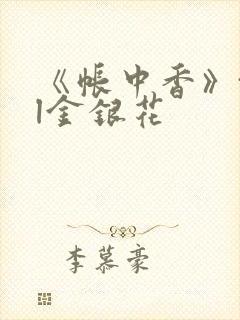 《帐中香》
l金银花
李慕豪